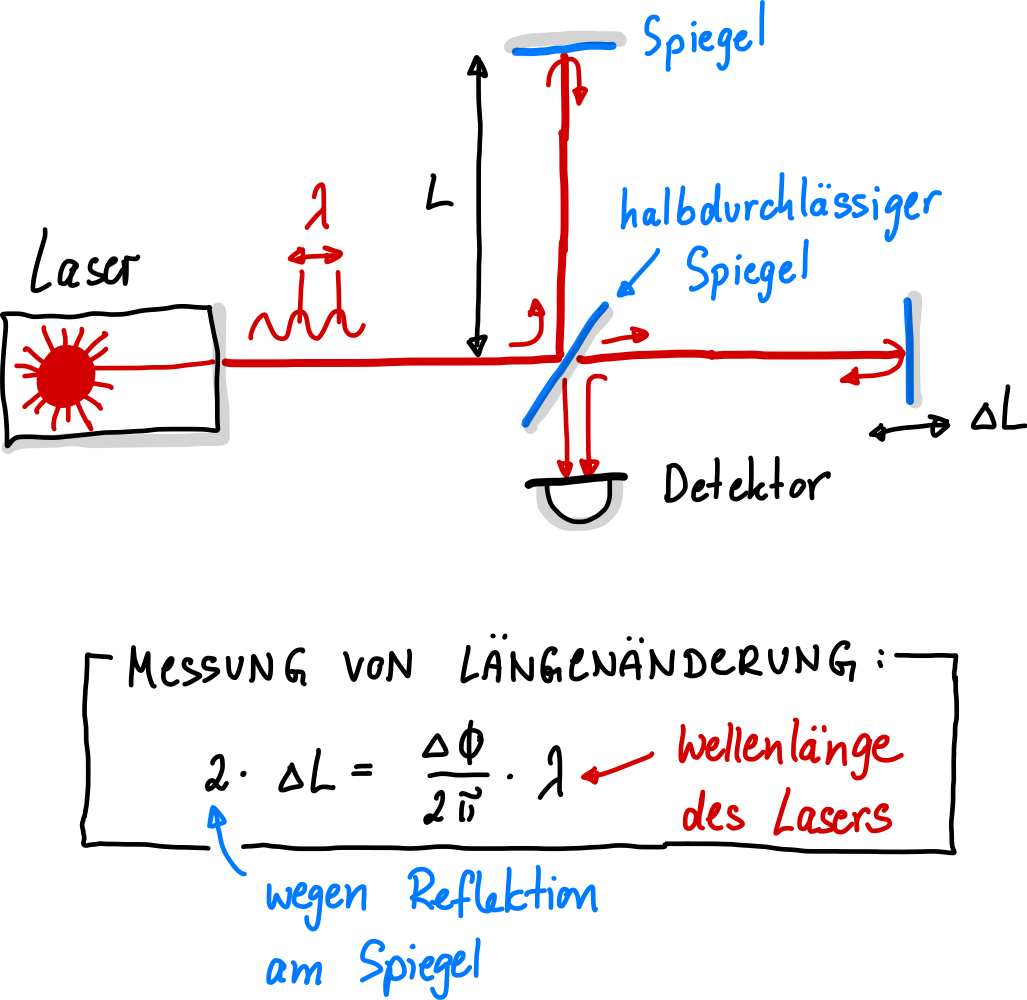 Spiegel
L
λ
halbdurchlässiger
Spiegel
Laser
ΔL
Detektor
MESSUNG VON LÄNGENÄNDERUNG:
2 · ΔL = Δϕ/2π · λ
Wellenlänge
des Lasers
wegen Reflektion
am Spiegel